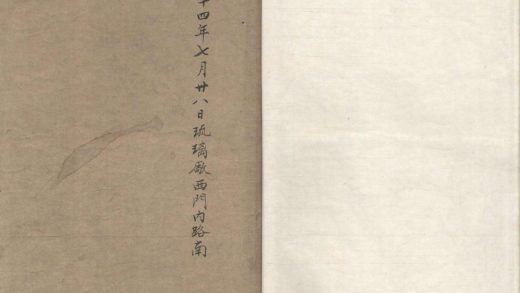 十四年七月廿八日琉璃厰西門内路南